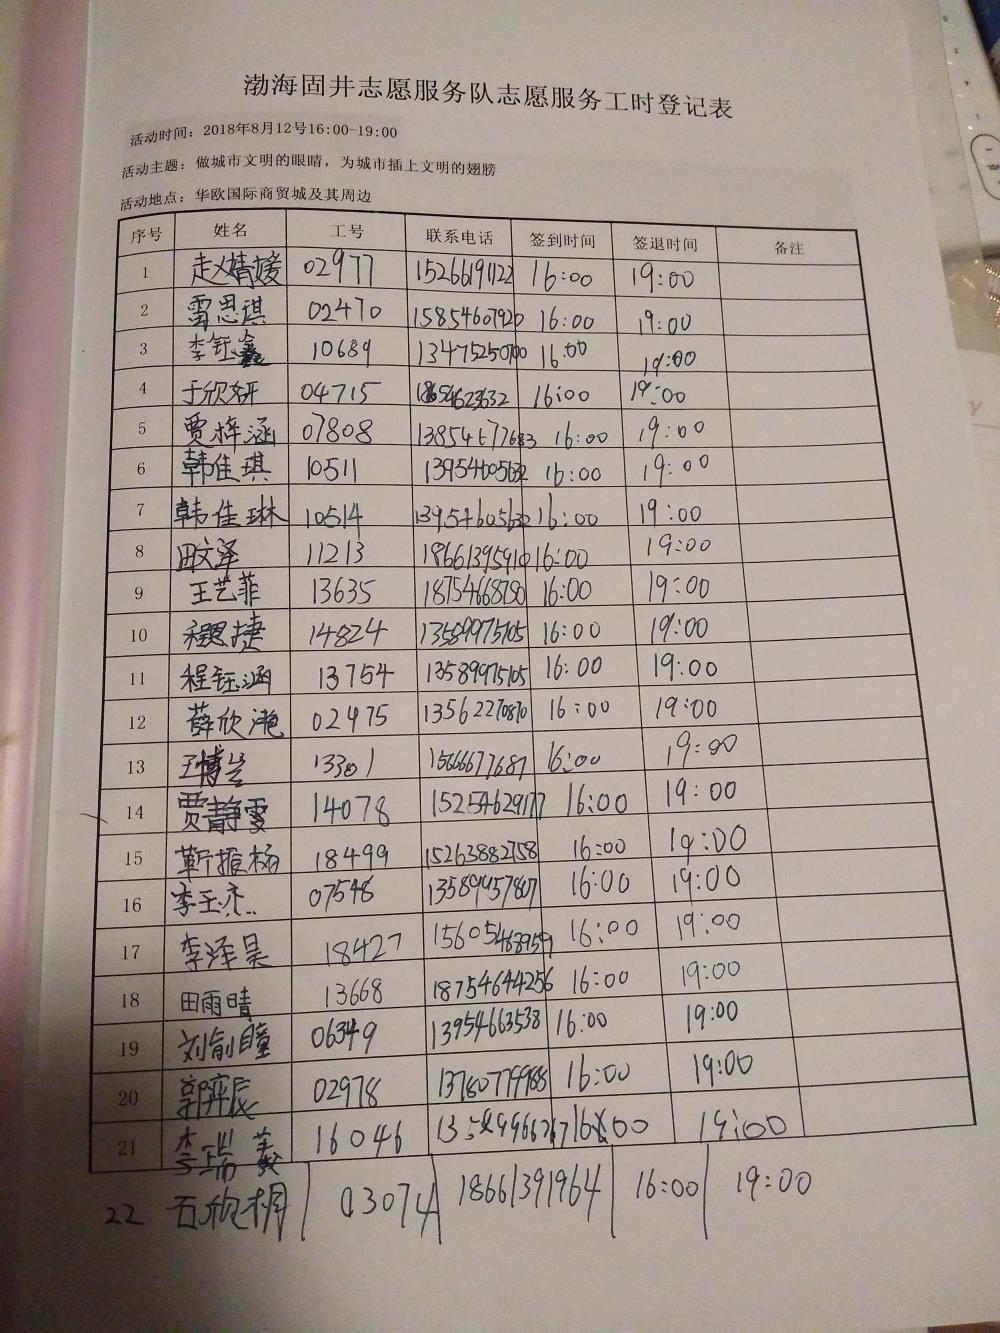 渤海固井志愿服务队志愿服务工时登记表
活动时间：2018年8月12号16:00-19:00
活动主题：做城市文明的眼睛，为城市插上文明的翅膀
活动地点：华欧国际商贸城及其周边
序号 姓名 工号 联系电话 签到时间 签退时间 备注
1 赵婧媛 02977 15266191122 16:00 19:00
2 雷思琪 02470 15854607920 16:00 19:00
3 李钰鑫 10689 13475250700 16:00 19:00
4 于欣妍 04715 18654623632 16:00 19:00
5 贾梓涵 07808 13854677683 16:00 19:00
6 韩佳琪 10511 13954605632 16:00 19:00
7 韩佳琳 10514 13954605632 16:00 19:00
8 田文泽 11213 18661395910 16:00 19:00
9 王艺菲 13635 18754668780 16:00 19:00
10 程思捷 14824 13589975105 16:00 19:00
11 程钰涵 13754 13589975105 16:00 19:00
12 薛欣滟 02475 13562270870 16:00 19:00
13 王博 13301 15666677687 16:00 19:00
14 贾静雯 14078 15254629177 16:00 19:00
15 靳振杨 18499 15263882758 16:00 19:00
16 李玉 07548 13589957807 16:00 19:00
17 李泽昊 18427 15605463959 16:00 19:00
18 田雨晴 13668 18754644256 16:00 19:00
19 刘俞瞳 06349 13954663538 16:00 19:00
20 郭弈辰 02978 13780779988 16:00 19:00
21 李瑞义 16046 16:00 19:00
22 石欣桐 03074 18661391964 16:00 19:00